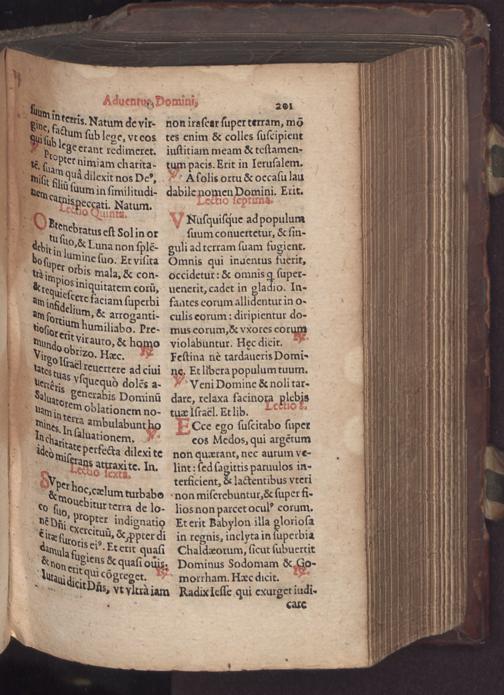 Aduentus Domini,
201
suum in terris. Natum de vir-
gine, factum sub lege, vt eos
qui sub lege erant redimeret.
℣. Propter nimiam charita-
tē. suam quā dilexit nos Deꝰ,
misit filiū suum in similitudi-
nem carnis peccati. Natum.
Lectio Quinta.
OBtenebratus est Sol in or
tu suo, & Luna non splē-
debit in lumine suo. Et visita
bo super orbis mala, & con-
trà impios iniquitatem corū,
& requiescere faciam superbi
am infidelium, & arroganti-
am fortium humiliabo. Pre-
tiosior erit vir auro, & homo
mundo obrizo. Hæc. ℟.
Virgo Israël reuertere ad ciui
tates tuas vsquequò dolēs a-
uertêris generabis Dominū
Saluatorem oblationem no-
uam in terra ambulabunt ho
mines. In saluationem. ℣.
In charitate perfecta dilexi te
ideò miserans attraxi te. In.
Lectio sexta.
SVper hoc, cælum turbabo
& mouebitur terra de lo-
co suo, propter indignatio
nē Dñi exercituū, & ꝓpter di
ē iræ furoris eiꝰ. Et erit quasi
damula fugiens & quasi ouis,
& non erit qui cōgreget. ℟.
Iuraui dicit Dñs, vt vltrà iam
non irascar super terram, mō
tes enim & colles suscipient
iustitiam meam & testamen-
tum pacis. Erit in Ierusalem.
℣. A solis ortu & occasu lau
dabile nomen Domini. Erit.
Lectio septima.
VNusquisque ad populum
suum conuertetur, & sin-
guli ad terram suam fugient.
Omnis qui inuentus fuerit,
occidetur: & omnis q super-
uenerit, cadet in gladio. In-
fantes eorum allidentur in o-
culis eorum: diripientur do-
mus eorum, & vxores eorum
violabuntur. Hęc dicit. ℟.
Festina nè tardaueris Domi-
ne. Et libera populum tuum.
℣. Veni Domine & noli tar-
dare, relaxa facinora plebis
tuæ Israël. Et lib. Lectio 8.
ECce ego suscitabo super
eos Medos, qui argētum
non quærant, nec aurum ve-
lint: sed sagittis paruulos in-
terficient, & lactentibus vteri
non miserebuntur, & super fi-
lios non parcet oculꝰ eorum.
Et erit Babylon illa gloriosa
in regnis, inclyta in superbia
Chaldæorum, sicut subuertit
Dominus Sodomam & Go-
morrham. Hæc dicit. ℟.
Radix Iesse qui exurget iudi-
care